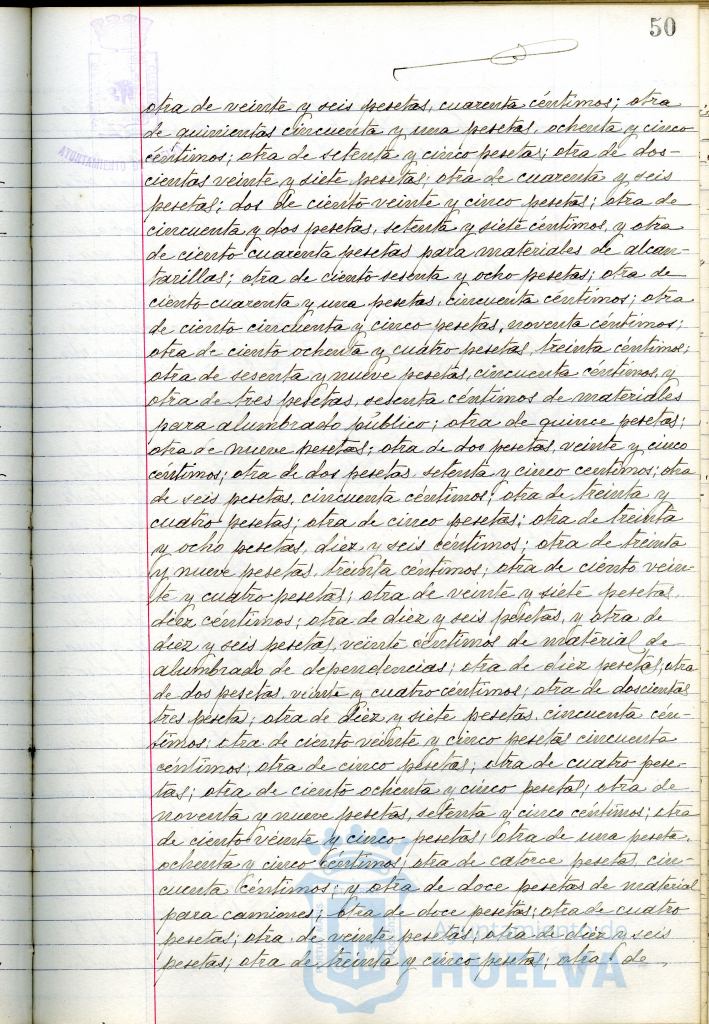 50
otra de veinte y seis pesetas, cuarenta céntimos; otra
de quinientas cincuenta y una pesetas, ochenta y cinco
céntimos; otra de setenta y cinco pesetas; otra de dos-
cientas veinte y siete pesetas; otra de cuarenta y seis
pesetas; dos de ciento veinte y cinco pesetas; otra de
cincuenta y dos pesetas, setenta y siete céntimos, y otra
de ciento cuarenta pesetas para materiales de alcan-
tarillas; otra de ciento sesenta y ocho pesetas; otra de
ciento cuarenta y una pesetas, cincuenta céntimos; otra
de ciento cincuenta y cinco pesetas, noventa céntimos;
otra de ciento ochenta y cuatro pesetas, treinta céntimos;
otra de sesenta y nueve pesetas, cincuenta céntimos, y
otra de tres pesetas, sesenta céntimos de materiales
para alumbrado público; otra de quince pesetas;
otra de nueve pesetas; otra de dos pesetas, veinte y cinco
céntimos; otra de dos pesetas, setenta y cinco centimos; otra
de seis pesetas, cincuenta céntimos; otra de treinta y
cuatro pesetas; otra de cinco pesetas; otra de treinta
y ocho pesetas, diez y seis céntimos; otra de treinta
y nueve pesetas, treinta céntimos; otra de ciento vein-
te y cuatro pesetas; otra de veinte y siete pesetas,
diez centimos; otra de diez y seis pesetas, y otra de
diez y seis pesetas, veinte centimos de material de
alumbrado de dependencias; otra de diez pesetas; otra
de dos pesetas, veinte y cuatro céntimos; otra de doscientas
tres pesetas; otra de diez y siete pesetas, cincuenta cén-
timos; otra de ciento veinte y cinco pesetas cincuenta
céntimos; otra de cinco pesetas; otra de cuatro pese-
tas; otra de ciento ochenta y cinco pesetas; otra de
noventa y nueve pesetas, setenta y cinco céntimos; otra
de ciento veinte y cinco pesetas; otra de una peseta,
ochenta y cinco céntimos; otra de catorce pesetas, cin-
cuenta céntimos; y otra de doce pesetas de material
para camiones; otra de doce pesetas; otra de cuatro
pesetas; otra de veinte pesetas; otra de diez y seis
pesetas; otra de treinta y cinco pesetas; otra de
AYUNTAMIENTO
Ayuntamiento de
HUELVA